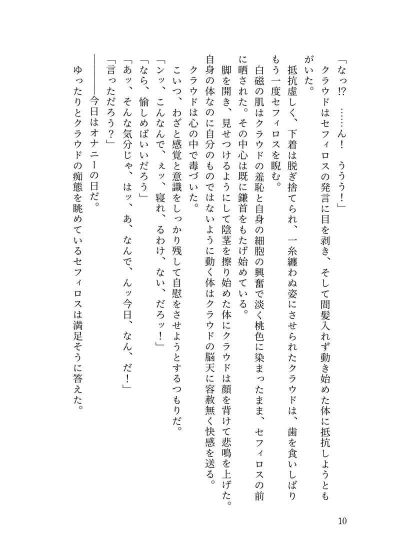 「なっ!?　……ん!　ううう!」
　クラウドはセフィロスの発言に目を剥き、そして間髪入れず動き始めた体に抵抗しようとも
がいた。
　抵抗虚しく、下着は脱ぎ捨てられ、一糸纏わぬ姿にさせられたクラウドは、歯を食いしばり
もう一度セフィロスを睨む。
　白磁の肌はクラウドの羞恥と自身の細胞の興奮で淡く桃色に染まったまま、セフィロスの前
に晒された。その中心は既に鎌首をもたげ始めている。
　脚を開き、見せつけるようにして陰茎を擦り始めた体にクラウドは顔を背けて悲鳴を上げた。
自身の体なのに自分のものではないように動く体はクラウドの脳天に容赦無く快感を送る。
　クラウドは心の中で毒づいた。
　こいつ、わざと感覚と意識をしっかり残して自慰をさせようとするつもりだ。
「ンッ、こんなんで、ぇッ、寝れ、るわけ、ない、だろッ!」
「なら、愉しめばいいだろう」
「あッ、そんな気分じゃ、はッ、あ、なんで、んッ今日、なん、だ!」
「言っただろう?」
――――今日はオナニーの日だ。
　ゆったりとクラウドの痴態を眺めているセフィロスは満足そうに答えた。
10